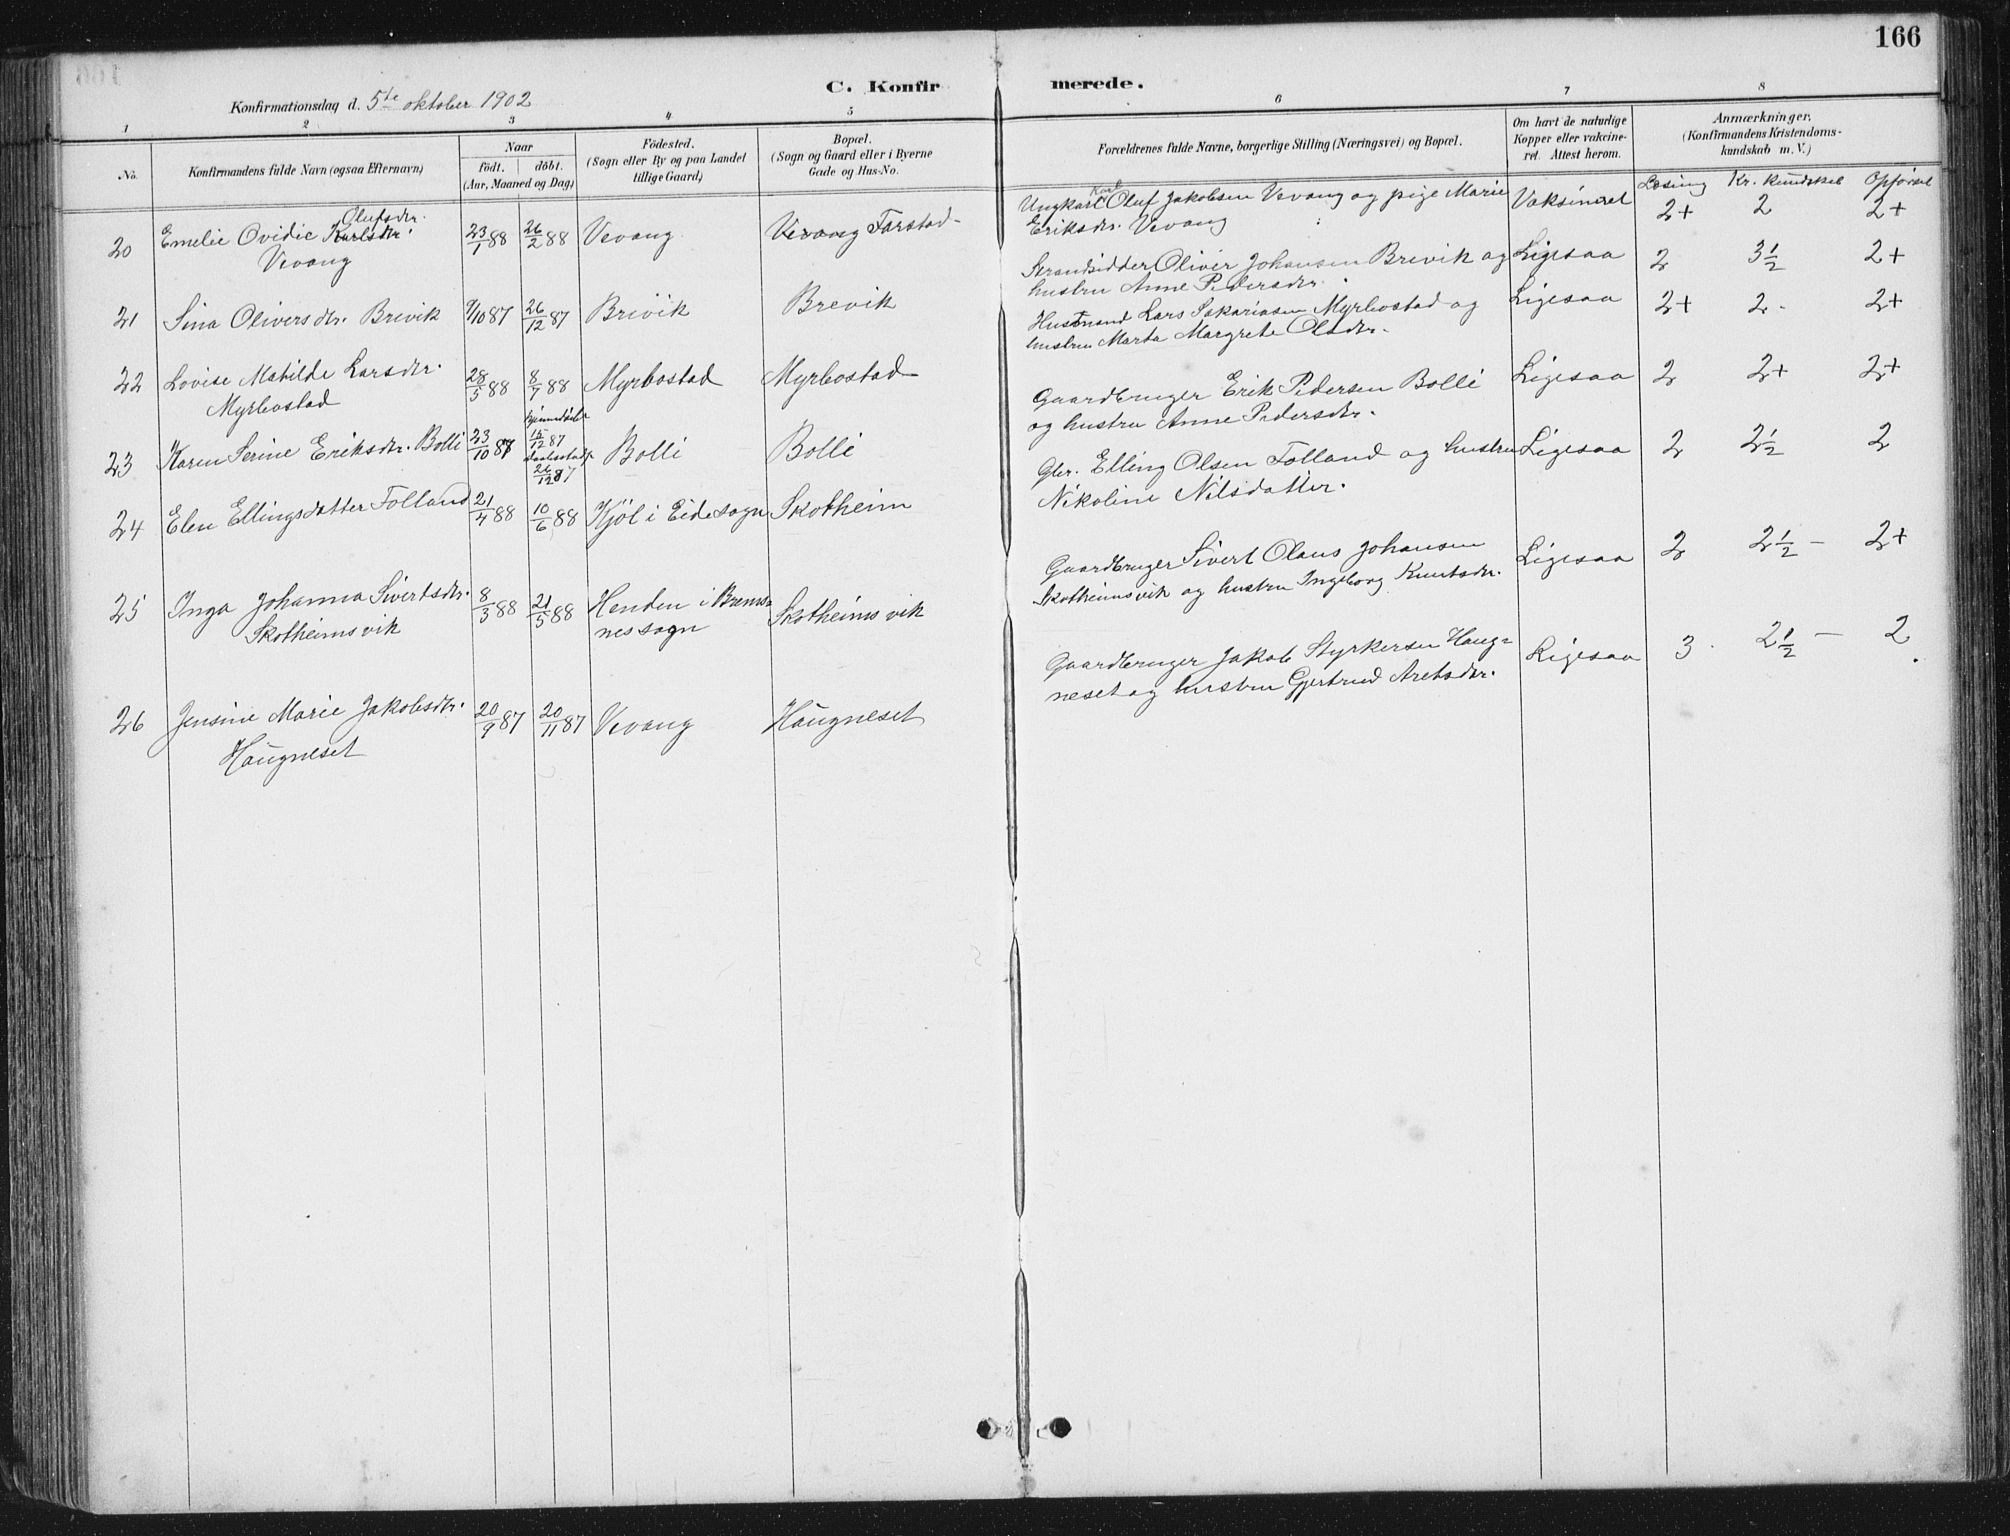 166
C. Konfirmerede.
Konfirmationsdag d. 5te oktober 1902
1 2 3 4 5 6 7 8
No. Konfirmandens fulde Navn (ogsaa Efternavn) Naar födt. döbt. (Aar, Maaned og Dag) Födested. (Sogn eller By og paa Landet tillige Gaard) Bopæl. (Sogn og Gaard eller i Byerne Gade og Hus-No. Forældrenes fulde Navne, borgerlige Stilling (Næringsvei) og Bopæl. Om havt de naturlige Kopper eller vakcineret. Attest herom. Anmærkninger. (Konfirmandens Kristendomskundskab m. V.)
Læsing Kr. kundskab Opførsel
20 Emelie Ovidie Karlsdtr. Olufsdtr. Vevang 23/1 88 26/2 88 Vevang Vevang Farstad Ungkarl Karl Oluf Jakobsen Vevang og pige Marie Eriksdtr. Vevang Vaksineret 2+ 2 2+
21 Sina Oliversdtr. Brevik 9/10 87 26/12 87 Brevik Brevik Strandsidder Oliver Johansen Brevik og hustru Anne Pedersdtr. Ligesaa 2 3½ 2+
22 Lovise Matilde Larsdtr. Myrbostad 28/5 88 8/7 88 Myrbostad Myrbostad Husmand Lars Sakariasen Myrbostad og hustru Marta Margrete Olsdtr. Ligesaa 2+ 2- 2+
23 Karen Serine Eriksdtr. Bolli 23/10 87 hjemmedöbt 15/12 87 26/12 87 Bolli Bolli Gaardbruger Erik Pedersen Bolli og hustru Anne Pedersdtr. Ligesaa 2 2+ 2+
24 Elen Ellingsdatter Folland 21/4 88 10/6 88 Kjöl i Eide sogn Skotheim Gbr. Elling Olsen Folland og hustru Nikoline Nilsdatter. Ligesaa 2 2½ 2
25 Inga Johanna Sivertsdtr. Skotheimsvik 8/3 88 21/5 88 Henden i Bremsnes sogn Skotheimsvik Gaardbruger Sivert Olaus Johansen Skotheimsvik og hustru Ingeborg Knutsdtr. Ligesaa 2 2½ - 2+
26 Jensine Marie Jakobsdtr. Haugneset 20/9 87 20/11 87 Vevang Haugneset Gaardbruger Jakob Styrkersen Haugneset og hustru Gjertrud Aretsdtr. Ligesaa 3 2½ - 2